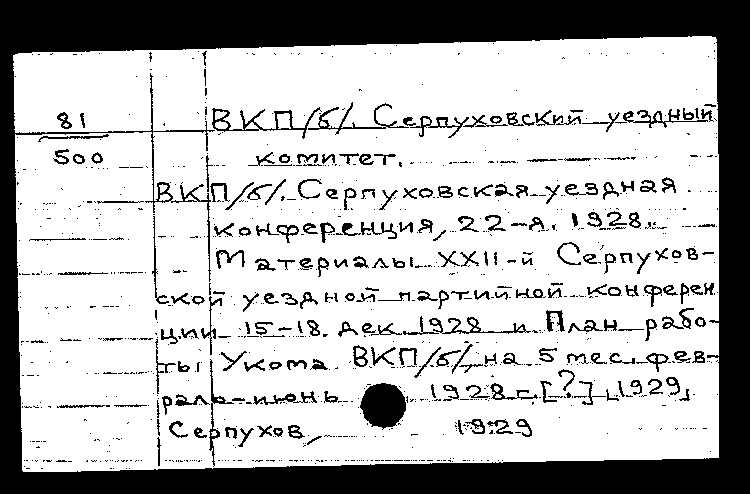 81
500
ВКП/б/. Серпуховский уездный
комитет.
ВКП/б/. Серпуховская уездная
конференция, 22-я. 1928.
Материалы XXII-й Серпухов-
ской уездной партийной конферен
ции 15-18. дек. 1928 и План рабо-
ты Укома ВКП/б/, на 5 мес. фев-
раль-июнь 1928-[?] 1929,
Серпухов, 1929